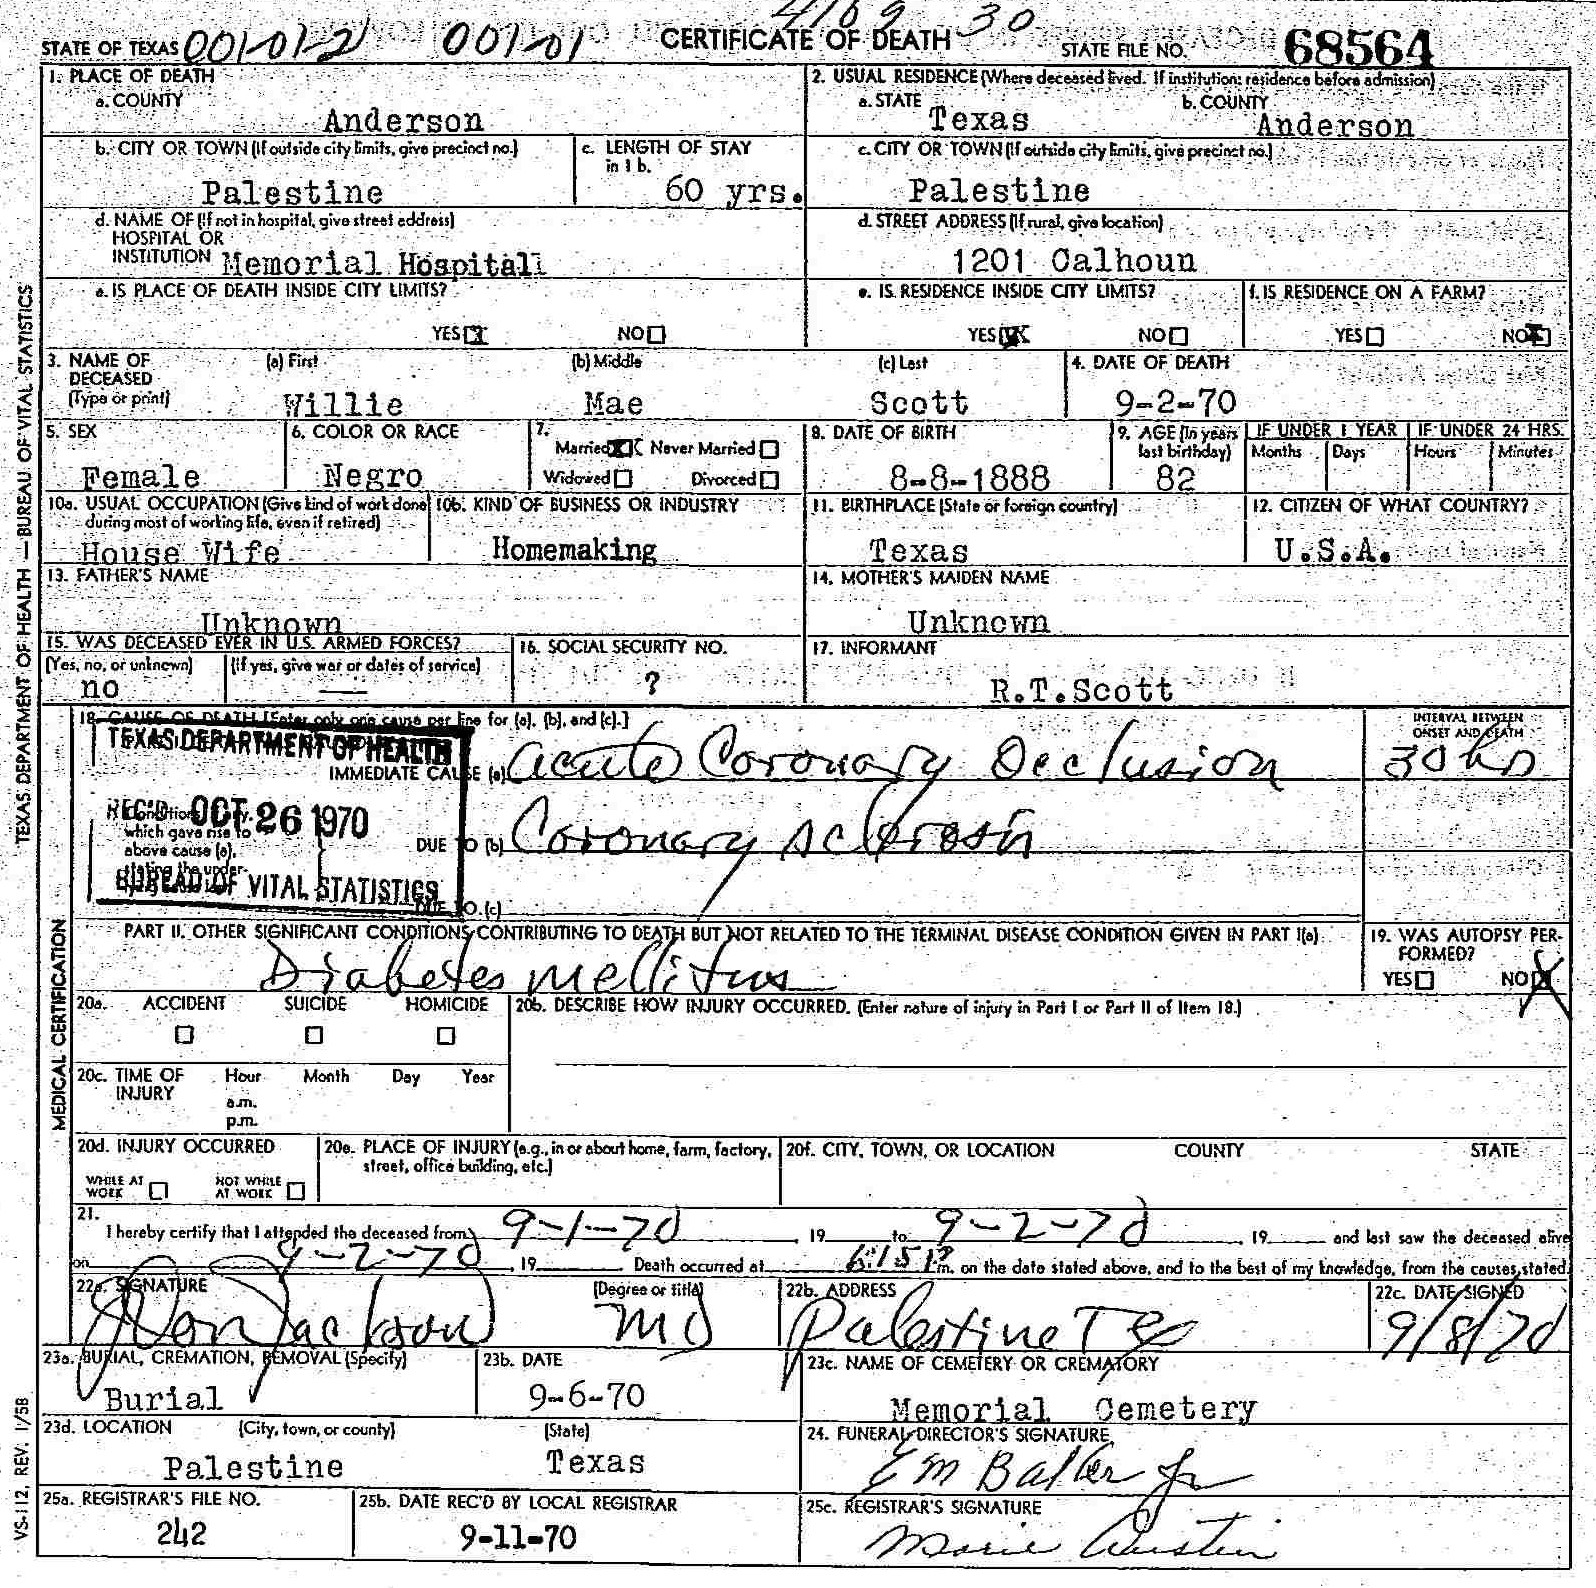 4109 30
STATE OF TEXAS 001-01-2 001-01 CERTIFICATE OF DEATH STATE FILE NO. 68564
1. PLACE OF DEATH
a. COUNTY
Anderson
2. USUAL RESIDENCE (Where deceased lived. If institution: residence before admission)
a. STATE b. COUNTY
Texas Anderson
b. CITY OR TOWN (If outside city limits, give precinct no.)
Palestine
c. LENGTH OF STAY
in 1 b.
60 yrs.
c. CITY OR TOWN (If outside city limits, give precinct no.)
Palestine
d. NAME OF (If not in hospital, give street address)
HOSPITAL OR
INSTITUTION Memorial Hospital
d. STREET ADDRESS (If rural, give location)
1201 Calhoun
e. IS PLACE OF DEATH INSIDE CITY LIMITS?
YES X NO
e. IS RESIDENCE INSIDE CITY LIMITS?
YES X NO
f. IS RESIDENCE ON A FARM?
YES NO X
3. NAME OF
DECEASED
(Type or print)
(a) First (b) Middle (c) Last
Willie Mae Scott
4. DATE OF DEATH
9-2-70
5. SEX
Female
6. COLOR OR RACE
Negro
7.
Married X Never Married
Widowed Divorced
8. DATE OF BIRTH
8-8-1888
9. AGE (In years
last birthday)
82
IF UNDER 1 YEAR
Months Days
IF UNDER 24 HRS.
Hours Minutes
10a. USUAL OCCUPATION (Give kind of work done
during most of working life, even if retired)
House Wife
10b. KIND OF BUSINESS OR INDUSTRY
Homemaking
11. BIRTHPLACE (State or foreign country)
Texas
12. CITIZEN OF WHAT COUNTRY?
U.S.A.
13. FATHER'S NAME
Unknown
14. MOTHER'S MAIDEN NAME
Unknown
15. WAS DECEASED EVER IN U.S. ARMED FORCES?
(Yes, no, or unknown) (If yes, give war or dates of service)
no —
16. SOCIAL SECURITY NO.
?
17. INFORMANT
R.T.Scott
18. CAUSE OF DEATH [Enter only one cause per line for (a), (b), and (c).]
INTERVAL BETWEEN
ONSET AND DEATH
TEXAS DEPARTMENT OF HEALTH
IMMEDIATE CAUSE (a) Acute Coronary Occlusion 30 hrs
REC'D OCT 26 1970
which gave rise to
above cause (a),
DUE TO (b) Coronary sclerosis
BUREAU OF VITAL STATISTICS
DUE TO (c)
PART II. OTHER SIGNIFICANT CONDITIONS CONTRIBUTING TO DEATH BUT NOT RELATED TO THE TERMINAL DISEASE CONDITION GIVEN IN PART I(a)
Diabetes mellitus
19. WAS AUTOPSY PER-
FORMED?
YES NO X
20a. ACCIDENT SUICIDE HOMICIDE
20b. DESCRIBE HOW INJURY OCCURRED. (Enter nature of injury in Part I or Part II of Item 18.)
20c. TIME OF
INJURY
Hour Month Day Year
a.m.
p.m.
20d. INJURY OCCURRED
WHILE AT
WORK
NOT WHILE
AT WORK
20e. PLACE OF INJURY (e.g., in or about home, farm, factory,
street, office building, etc.)
20f. CITY, TOWN, OR LOCATION COUNTY STATE
21.
I hereby certify that I attended the deceased from 9-1-70, 19 to 9-2-70, 19 and last saw the deceased alive
on 9-2-70, 19 Death occurred at 6:15 P m. on the date stated above, and to the best of my knowledge, from the causes stated.
22a. SIGNATURE (Degree or title)
Jackson MD
22b. ADDRESS
Palestine Tex
22c. DATE SIGNED
9/8/70
23a. BURIAL, CREMATION, REMOVAL (Specify)
Burial
23b. DATE
9-6-70
23c. NAME OF CEMETERY OR CREMATORY
Memorial Cemetery
23d. LOCATION (City, town, or county) (State)
Palestine Texas
24. FUNERAL DIRECTOR'S SIGNATURE
E M Jr
25a. REGISTRAR'S FILE NO.
242
25b. DATE REC'D BY LOCAL REGISTRAR
9-11-70
25c. REGISTRAR'S SIGNATURE
Marie Austin
TEXAS DEPARTMENT OF HEALTH — BUREAU OF VITAL STATISTICS
MEDICAL CERTIFICATION
VS-112, REV. 1/58